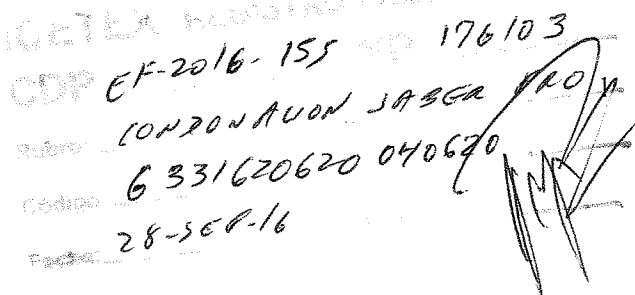 ICETEX
CDP EF-2016-155 176103
Rubro: CONDONACION SABER PRO
Código G 331620620 040620
Fecha: 28-SEP-16